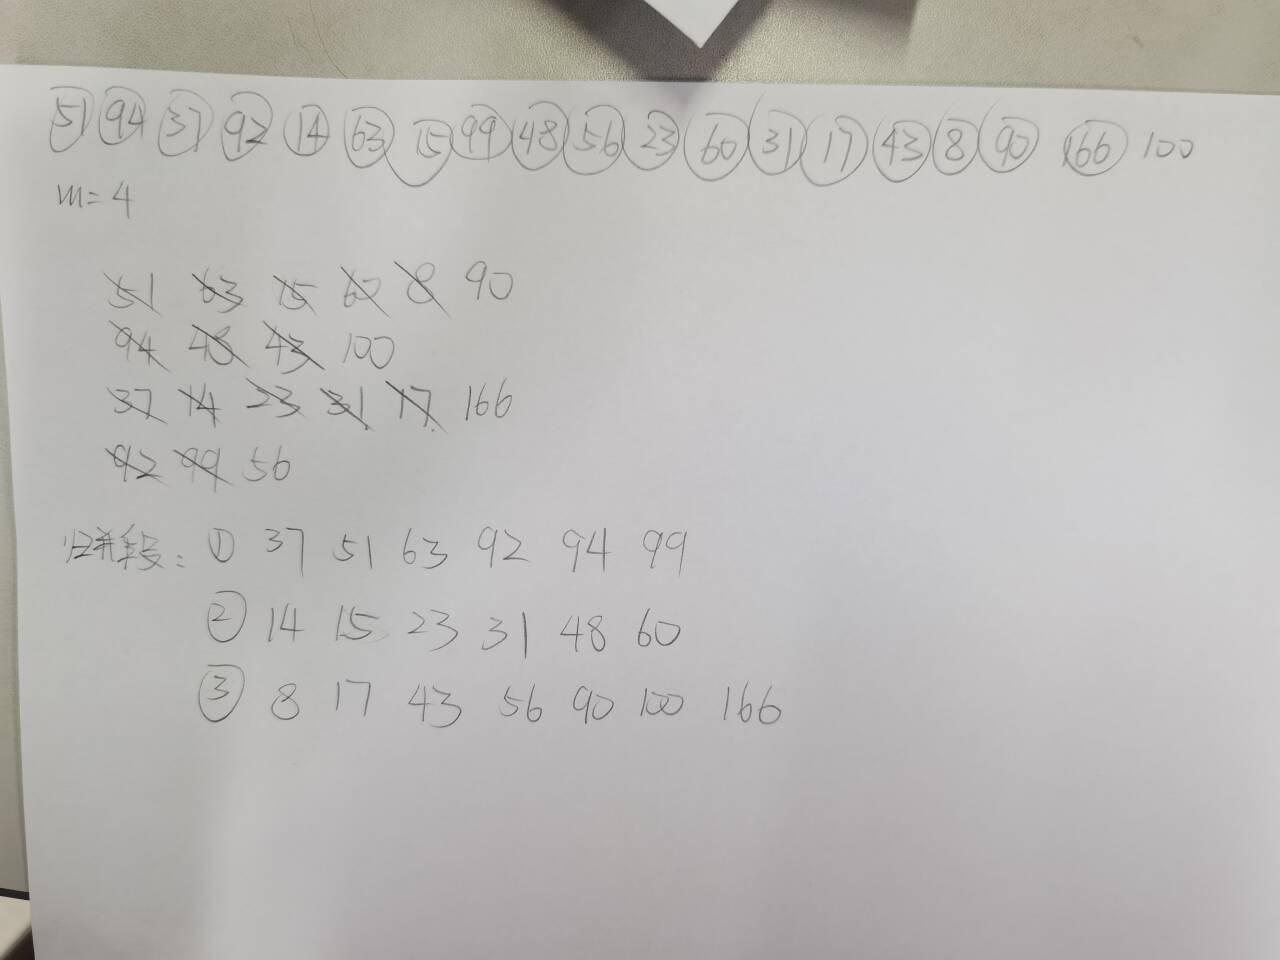 51 94 37 92 14 63 15 99 48 56 23 60 31 17 43 8 90 166 100
m=4
51 63 15 60 8 90
94 48 43 100
37 14 23 31 17 166
92 99 56
归并段: ① 37 51 63 92 94 99
② 14 15 23 31 48 60
③ 8 17 43 56 90 100 166